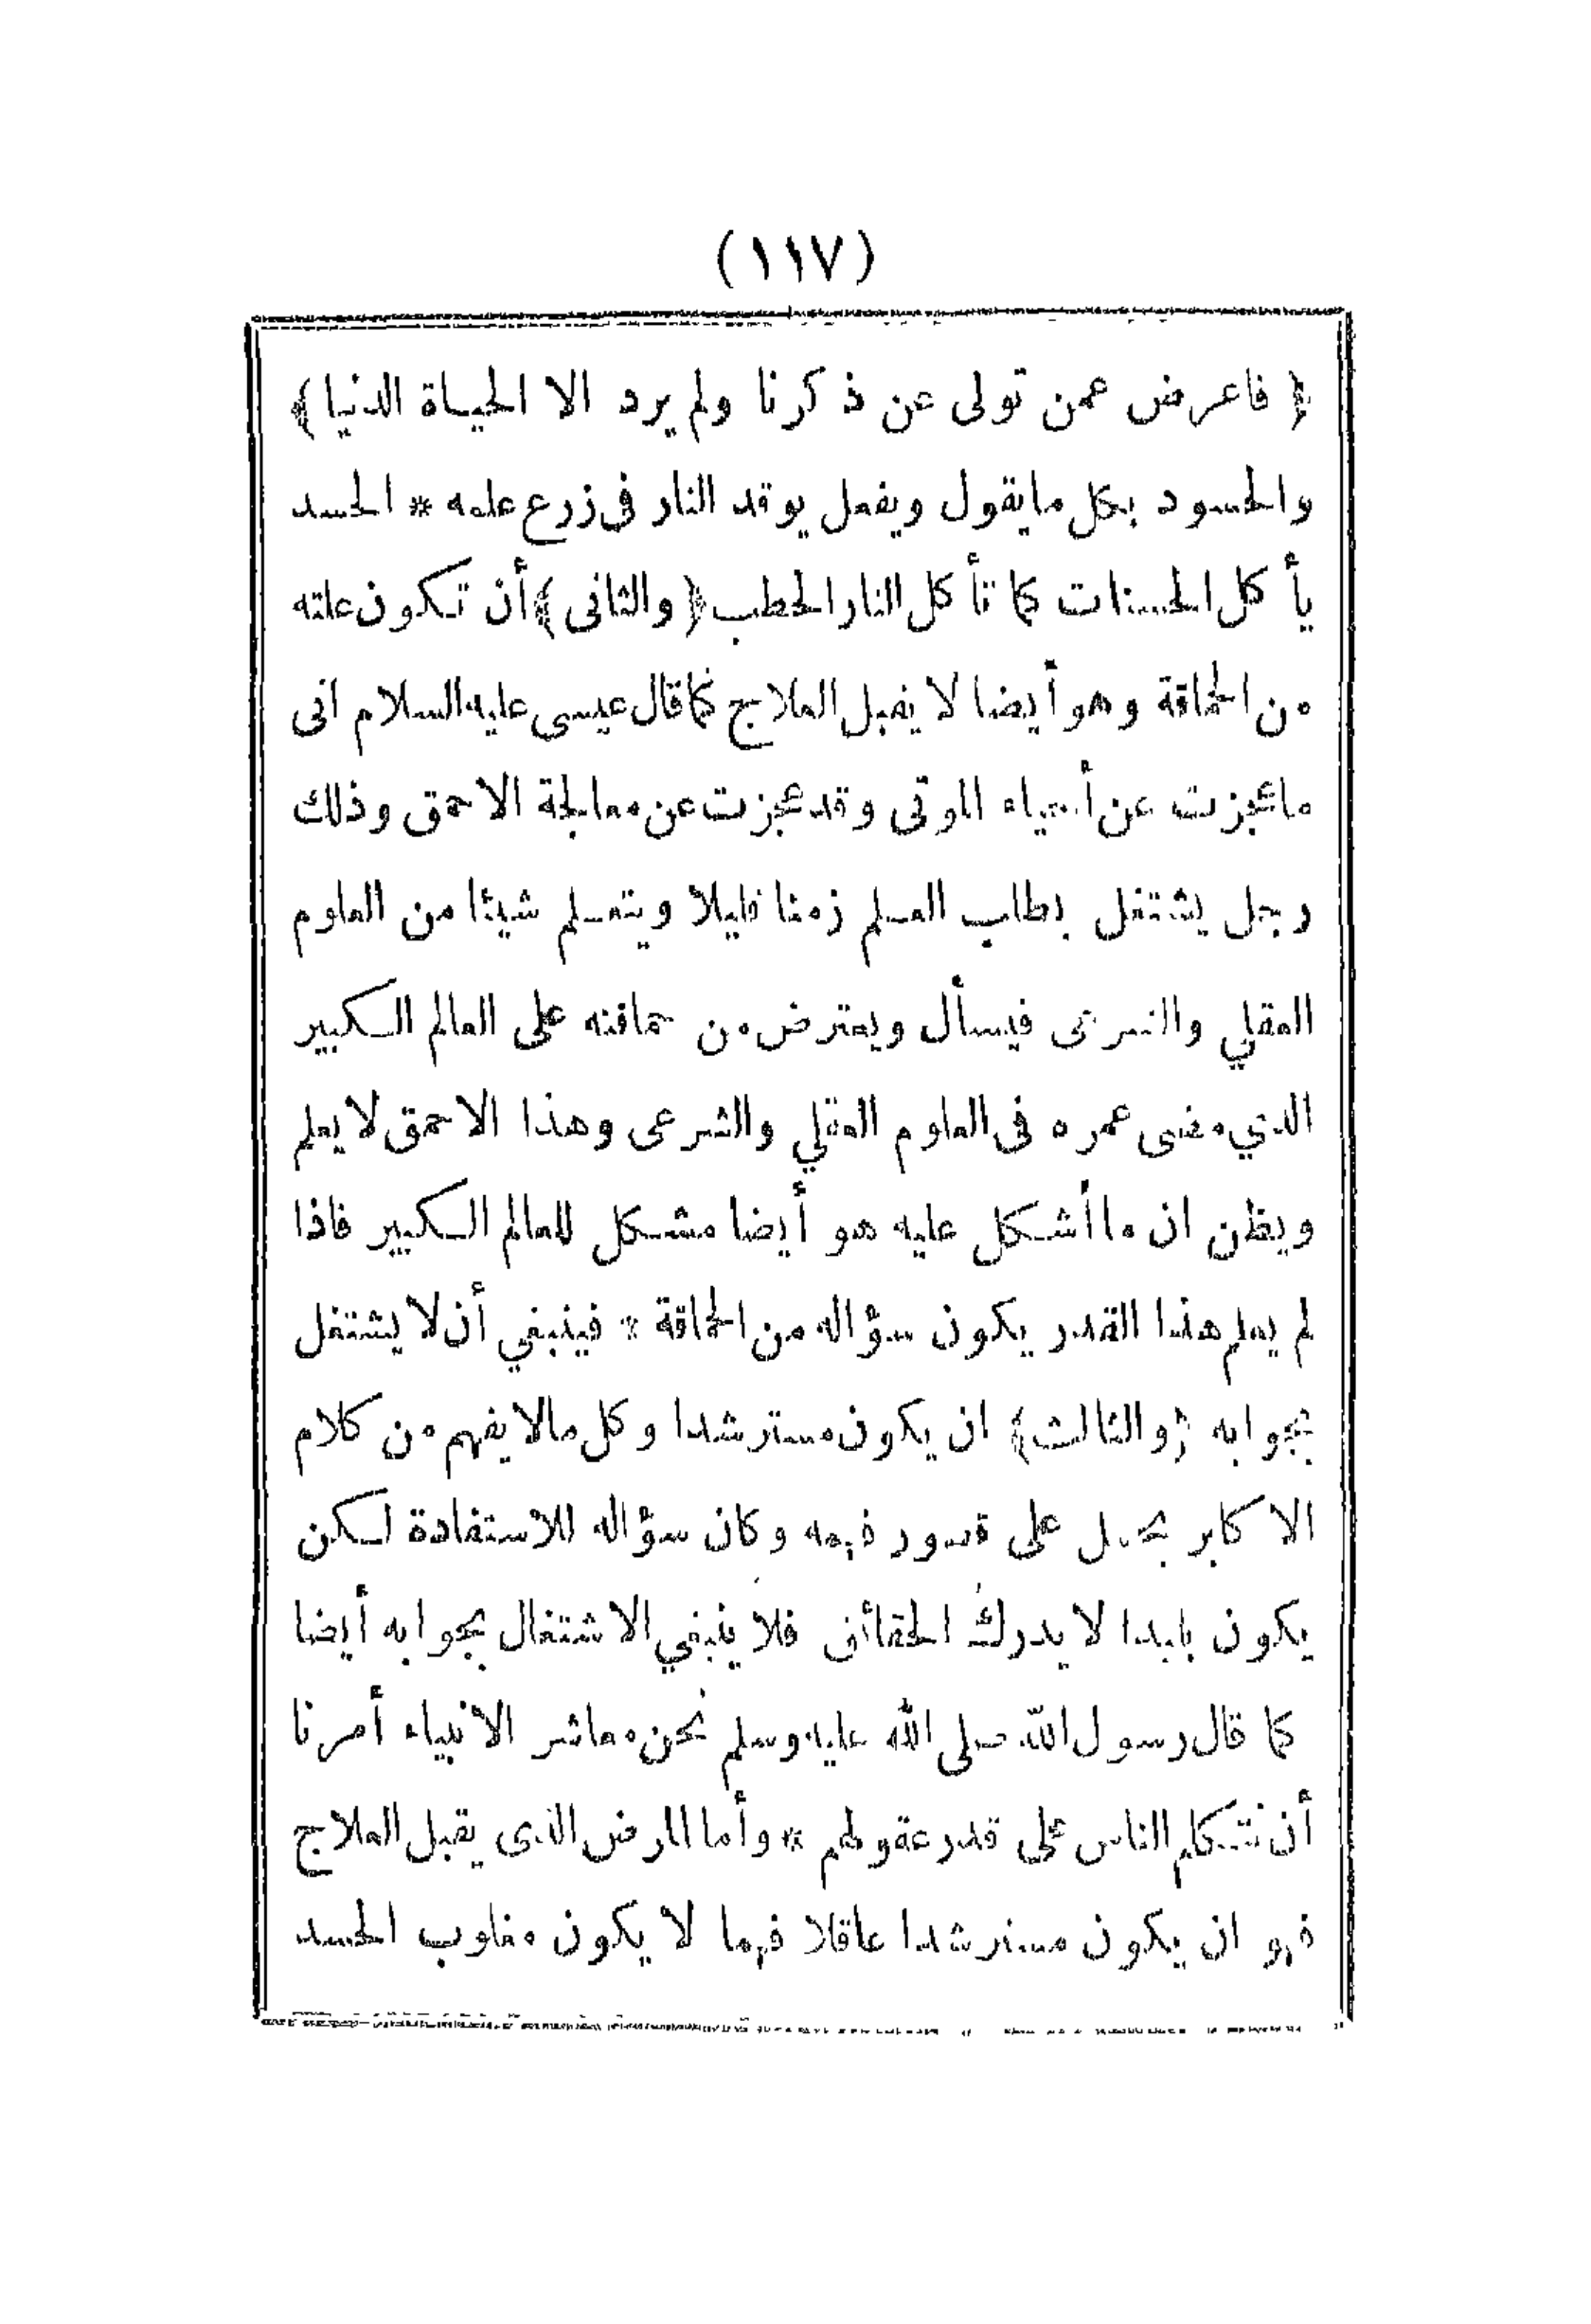 (١١٧)
﴿ فاعرض عمن تولى عن ذكرنا ولم يرد الا الحياة الدنيا ﴾
والحسود بكل مايقول ويفعل يوقد النار فى زرع علمه * الحسد
يأكل الحسنات كما تأكل النار الحطب ﴿ والثانى ﴾ أن تكون علته
من الحماقة وهو أيضا لا يقبل العلاج كما قال عيسى عليه السلام انى
ماعجزت عن أحياء الموتى وقد عجزت عن معالجة الاحمق وذلك
رجل يشتغل بطلب العلم زمنا قليلا ويتعلم شيئا من العلوم
العقلي والشرعى فيسأل ويعترض من حماقته على العالم الكبير
الذي مضى عمره فى العلوم العقلي والشرعى وهذا الاحمق لا يعلم
ويظن ان ما أشكل عليه هو أيضا مشكل للعالم الكبير فاذا
لم يعلم هذا القدر يكون سؤاله من الحماقة * فينبغي أن لا يشتغل
بجوابه ﴿ والثالث ﴾ ان يكون مسترشدا وكل مالا يفهم من كلام
الاكابر يحمل على قصور فهمه وكان سؤاله للاستفادة لكن
يكون بليدا لا يدرك الحقائق فلا ينبغي الاشتغال بجوابه أيضا
كما قال رسول الله صلى الله عليه وسلم نحن معاشر الانبياء أمرنا
أن نتكلم الناس على قدر عقولهم * وأما المرض الذى يقبل العلاج
فهو ان يكون مسترشدا عاقلا فهما لا يكون مغلوب الحسد